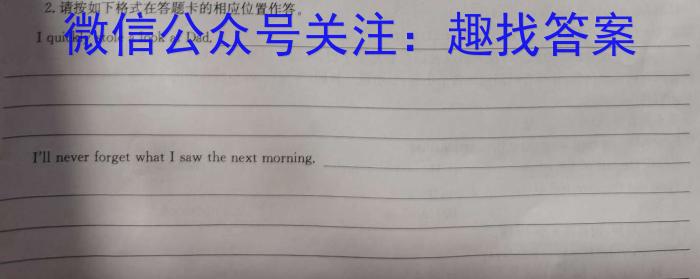 2.请按如下格式在答题卡的相应位置作答。
微信公众号关注：趣找答案
I quickly stole a look at Dad.
I'll never forget what I saw the next morning.